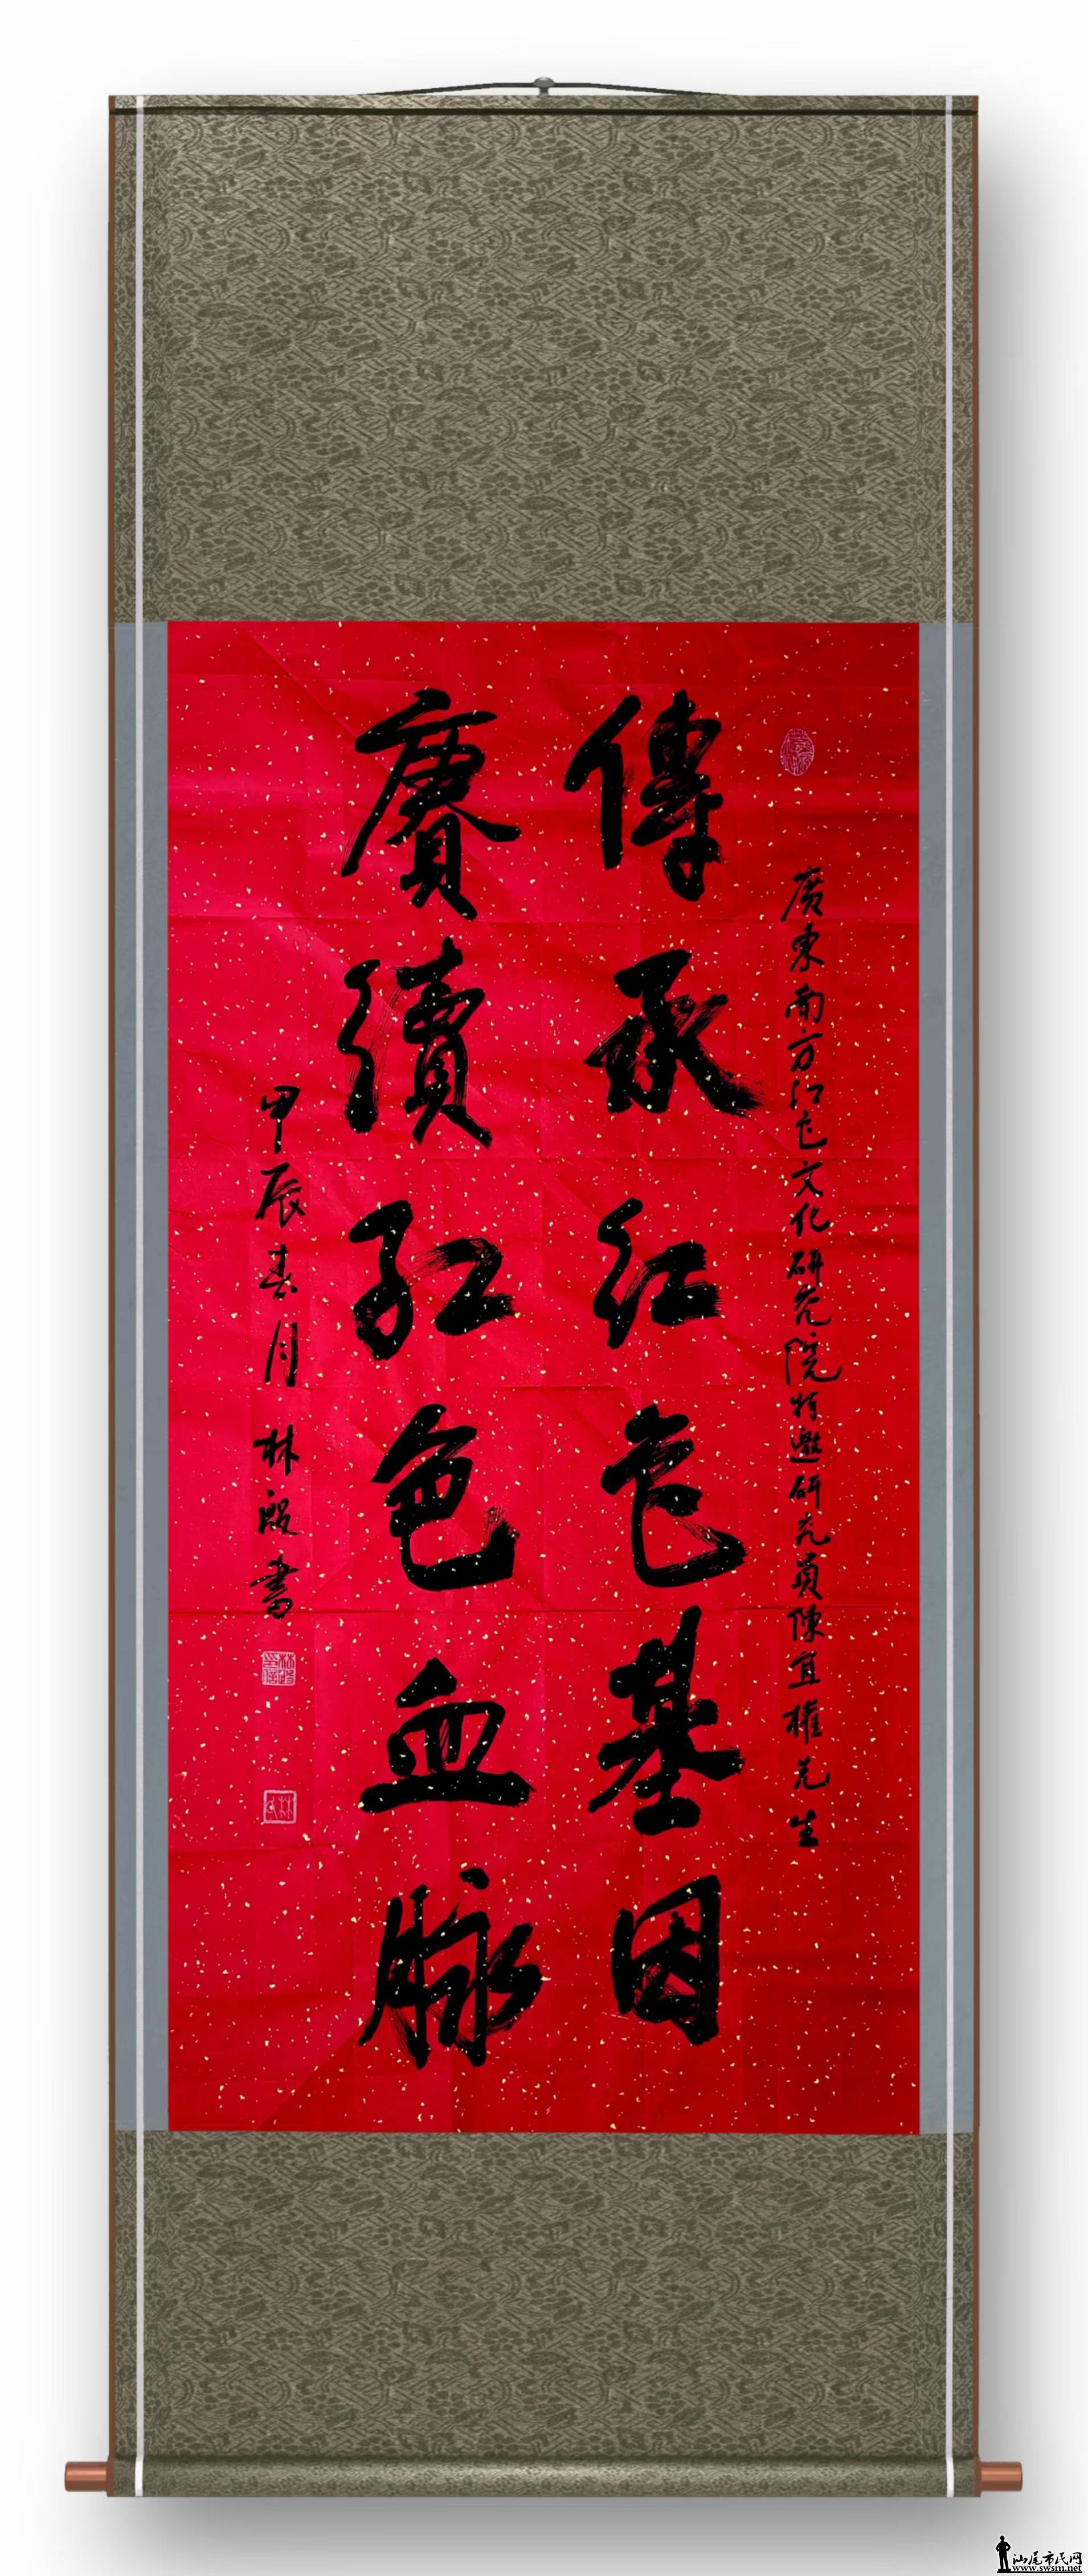 廣東南方红色文化研究院特邀研究員陳宜權先生
傳承红色基因
賡續红色血脉
甲辰春月 林殷書
汕尾市民网
www.swsm.net